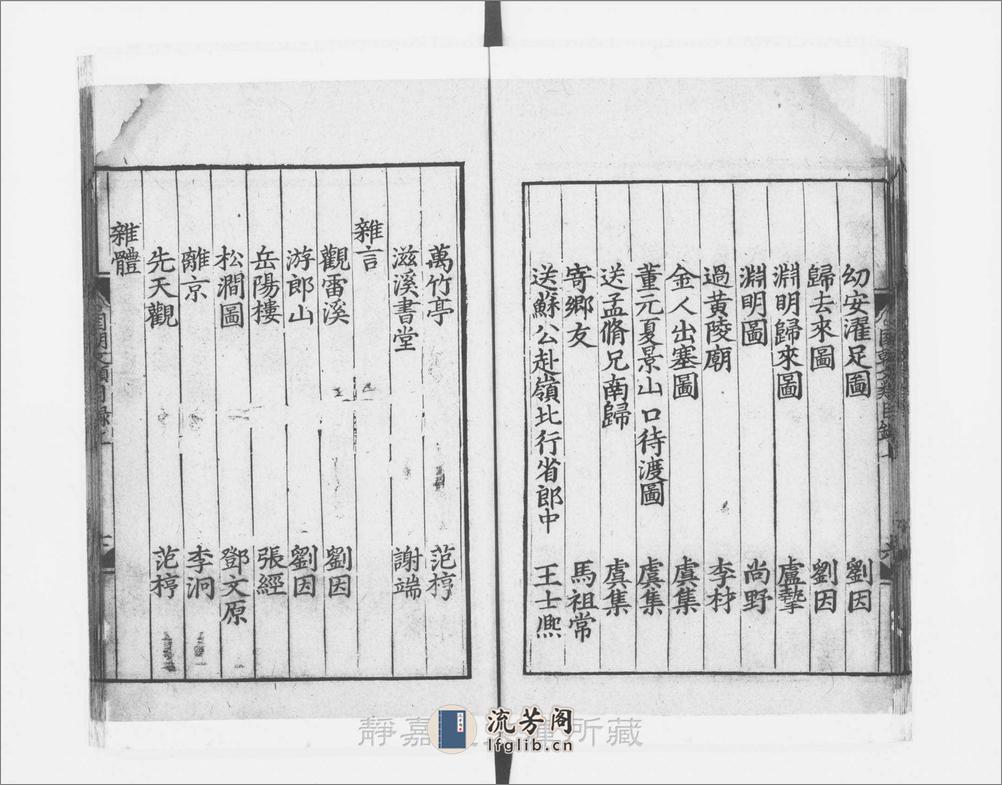 幼安濯足圖 劉因
歸去來圖 劉因
淵明歸來圖 盧摯
淵明圖 尚野
過黃陵廟 李材
金人出塞圖 虞集
董元夏景山口待渡圖 虞集
送孟脩兄南歸 虞集
寄鄉友 馬祖常
送蘇公赴嶺北行省郎中 王士熈
萬竹亭 范梈
滋溪書堂 謝端
雜言
觀雷溪 劉因
游郎山 劉因
岳陽樓 張經
松澗圖 鄧文原
離京 李泂
先天觀 范梈
雜體
流芳阁
lfglib.cn
靜嘉 所藏